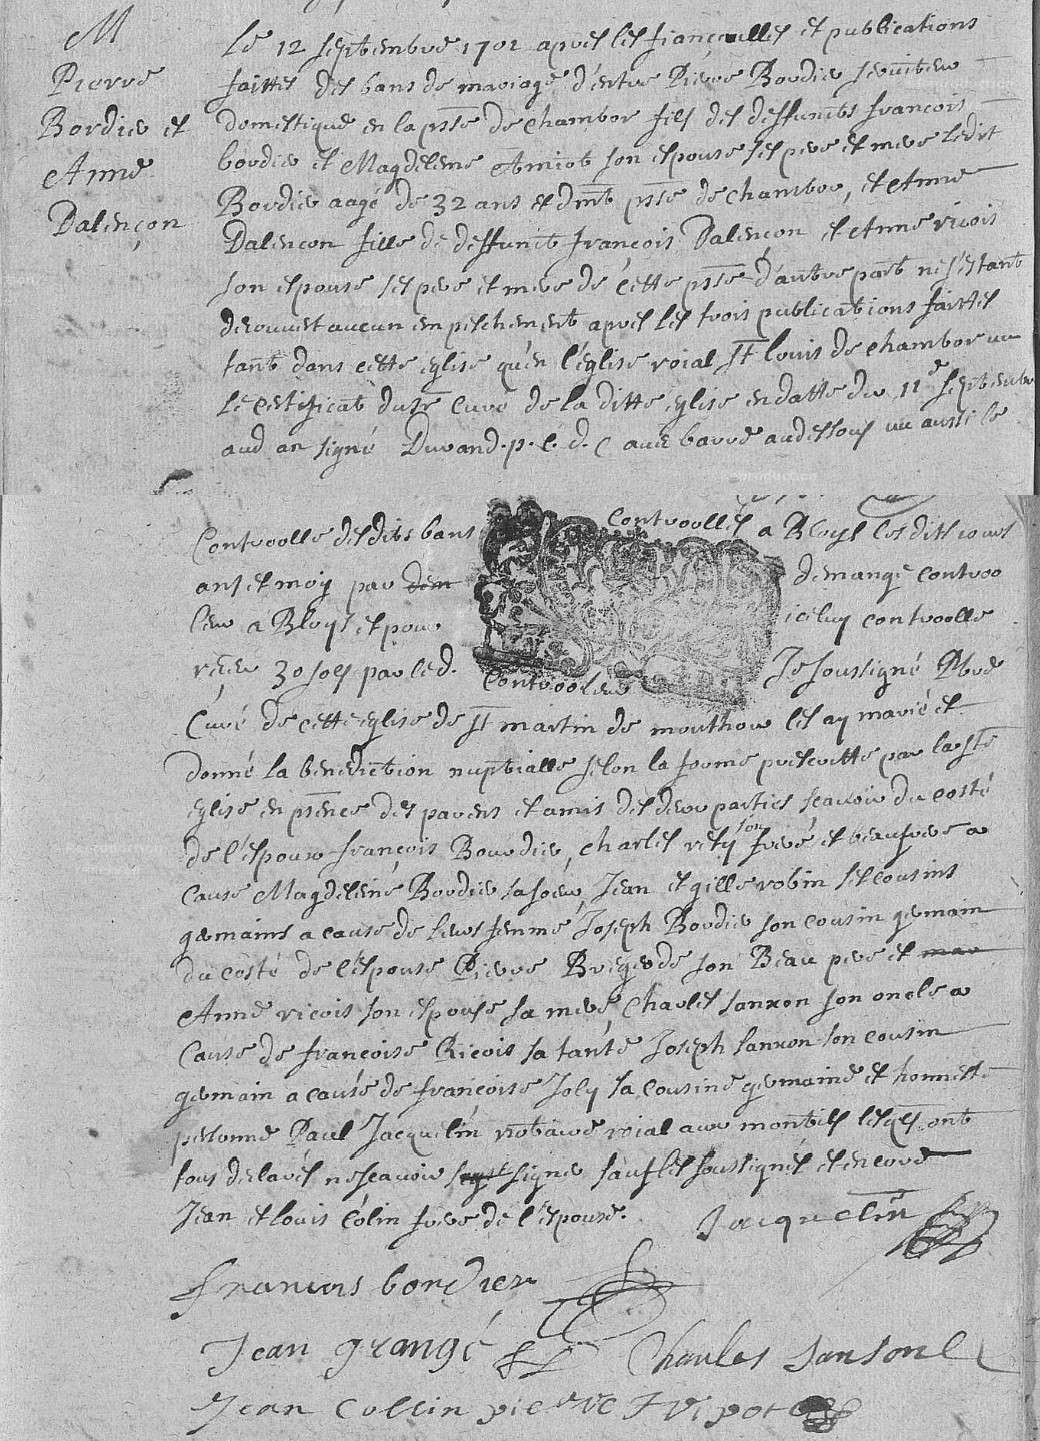 M
Pierre
Bordier et
Anne
Dalençon
Le 12 septembre 1702 apres les fiançailles et publications
faittes des bans de mariage d'entre Pierre Bordier serviteur
domestique en la psse de chambor fils des deffuncts francois
bordier et Magdelene Amiot son espouse ses pere et mere ledit
Bordier aagé de 32 ans et dmt psse de chambor, et Anne
Dalencon fille de deffunct françois Dalençon et Anne ricois
son espouse ses pere et mere de cette psse d'autre part ne s'estant
decouvert aucun empeschement apres les trois publications faittes
tant dans cette eglise qu'en l'église roial St louis de chambor vu
le certificat du sr curé de la ditte eglise en datte du 11e septembre
aud an signé Durand. p. c. d. C avec barre au dessous vu aussi le
controolle desdits bans controollés a Bloys lesdits jours
ans et moy par dem demange controo
leur a Bloys et pour iceluy controolle
receu 30 sols par led. controoleur Je soussigné Pbre
Curé de cette eglise de St martin de monthou les ay marié et
donné la benediction nuptialle selon la forme prescritte par la ste
eglise en psence des parens et amis des deux parties scavoir du costé
de l'espoux françois Bourdier, charles rety son frere et beaufrere a
cause Magdelene Bordier sa soeur, Jean et gille robin ses cousins
germains a cause de leurs femme, Joseph Bordier son cousin germain
du costé de l'espouse Pierre Bregerde son Beau pere et mar
Anne ricois son espouse sa mere, Charles sanxon son oncle a
Cause de francoise Ricois sa tante Joseph sanxon son cousin
germain a cause de francoise Joly sa cousine germaine et honneste
personne Paul Jacquelin notaire roial aux montils lesqls ont
tous declarés ne scavoir signer sauf les soussignés et encore
Jean et louis Colin frere de l'espouse.
Jacquelin
francois bordier
Jean grangé Charles sansont
Jean Collin pierre tripot